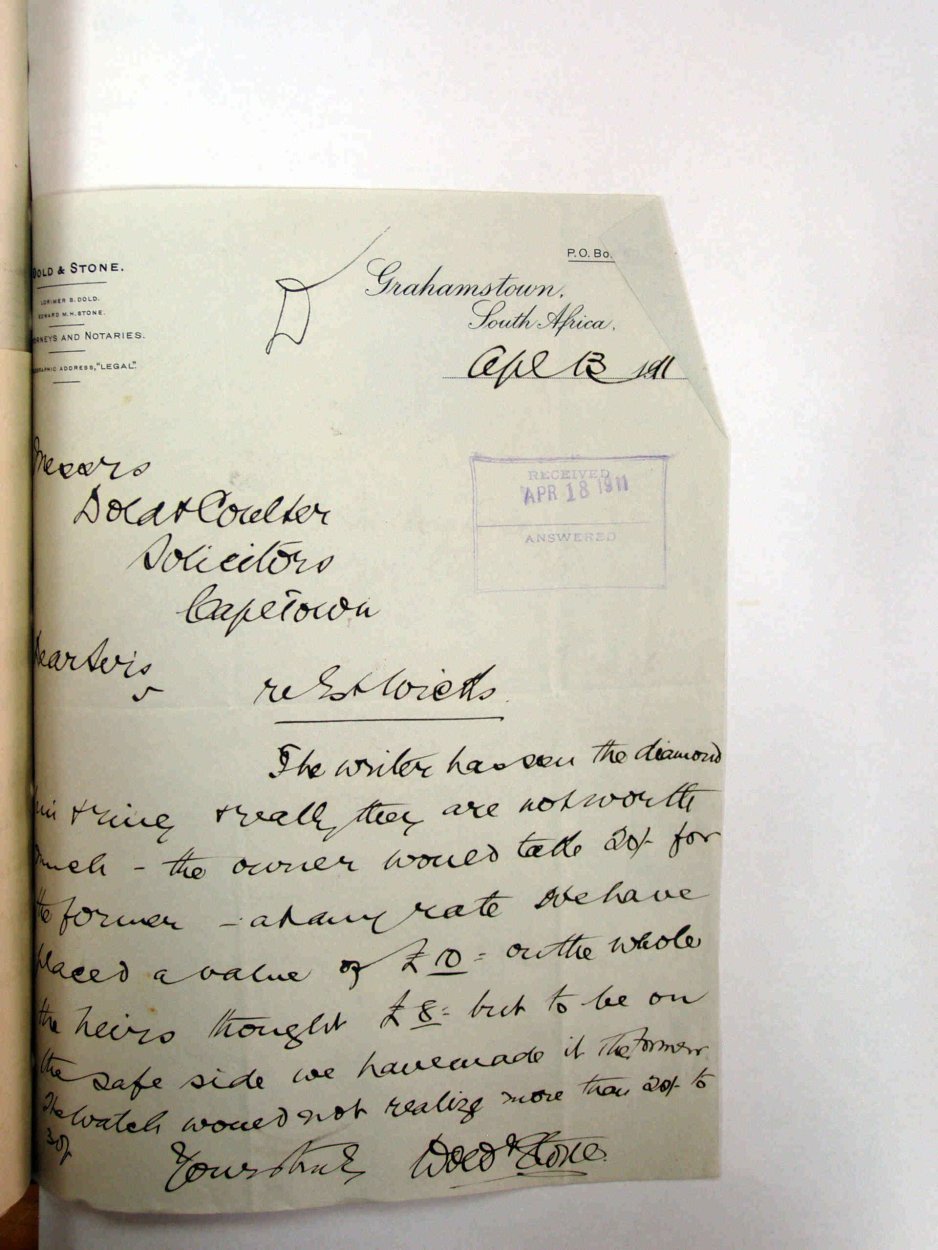 DOLD & STONE.
LORIMER B. DOLD.
EDWARD M.H. STONE.
ATTORNEYS AND NOTARIES.
TELEGRAPHIC ADDRESS, "LEGAL".
P.O. Bo
Grahamstown,
South Africa,
Apl 13 1911
Messrs
Dold & Coulter
Solicitors
Capetown
RECEIVED
APR 18 1911
ANSWERED
Dear Sirs
re Est Wicks
The writer has seen the diamond
pin & ring & really they are not worth
much - the owner would take 20/- for
the former - at any rate we have
placed a value of £10 = on the whole
the heirs thought £8 = but to be on
the safe side we have made it the former
The watch would not realize more than 20/- to
30/-
Yours truly Dold & Stone